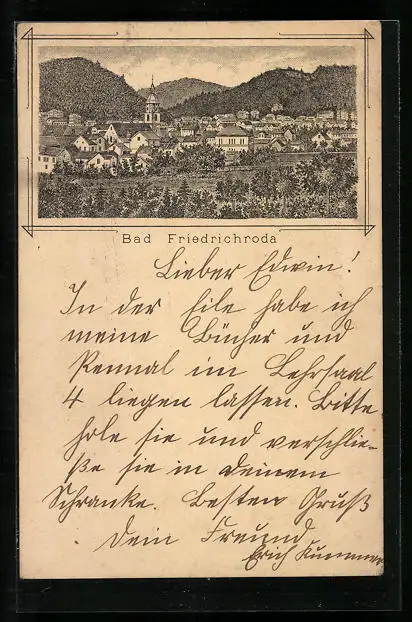 Bad Friedrichroda
Lieber Edwin!
In der Eile habe ich
meine Bücher und
Pennal im Lehrsaal
4 liegen lassen. Bitte
hole sie und verschlie-
ße sie in deinem
Schranke. Besten Gruß
Dein Freund
Erich Kummer